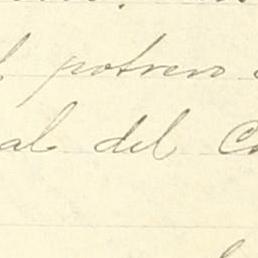 potrero
al del